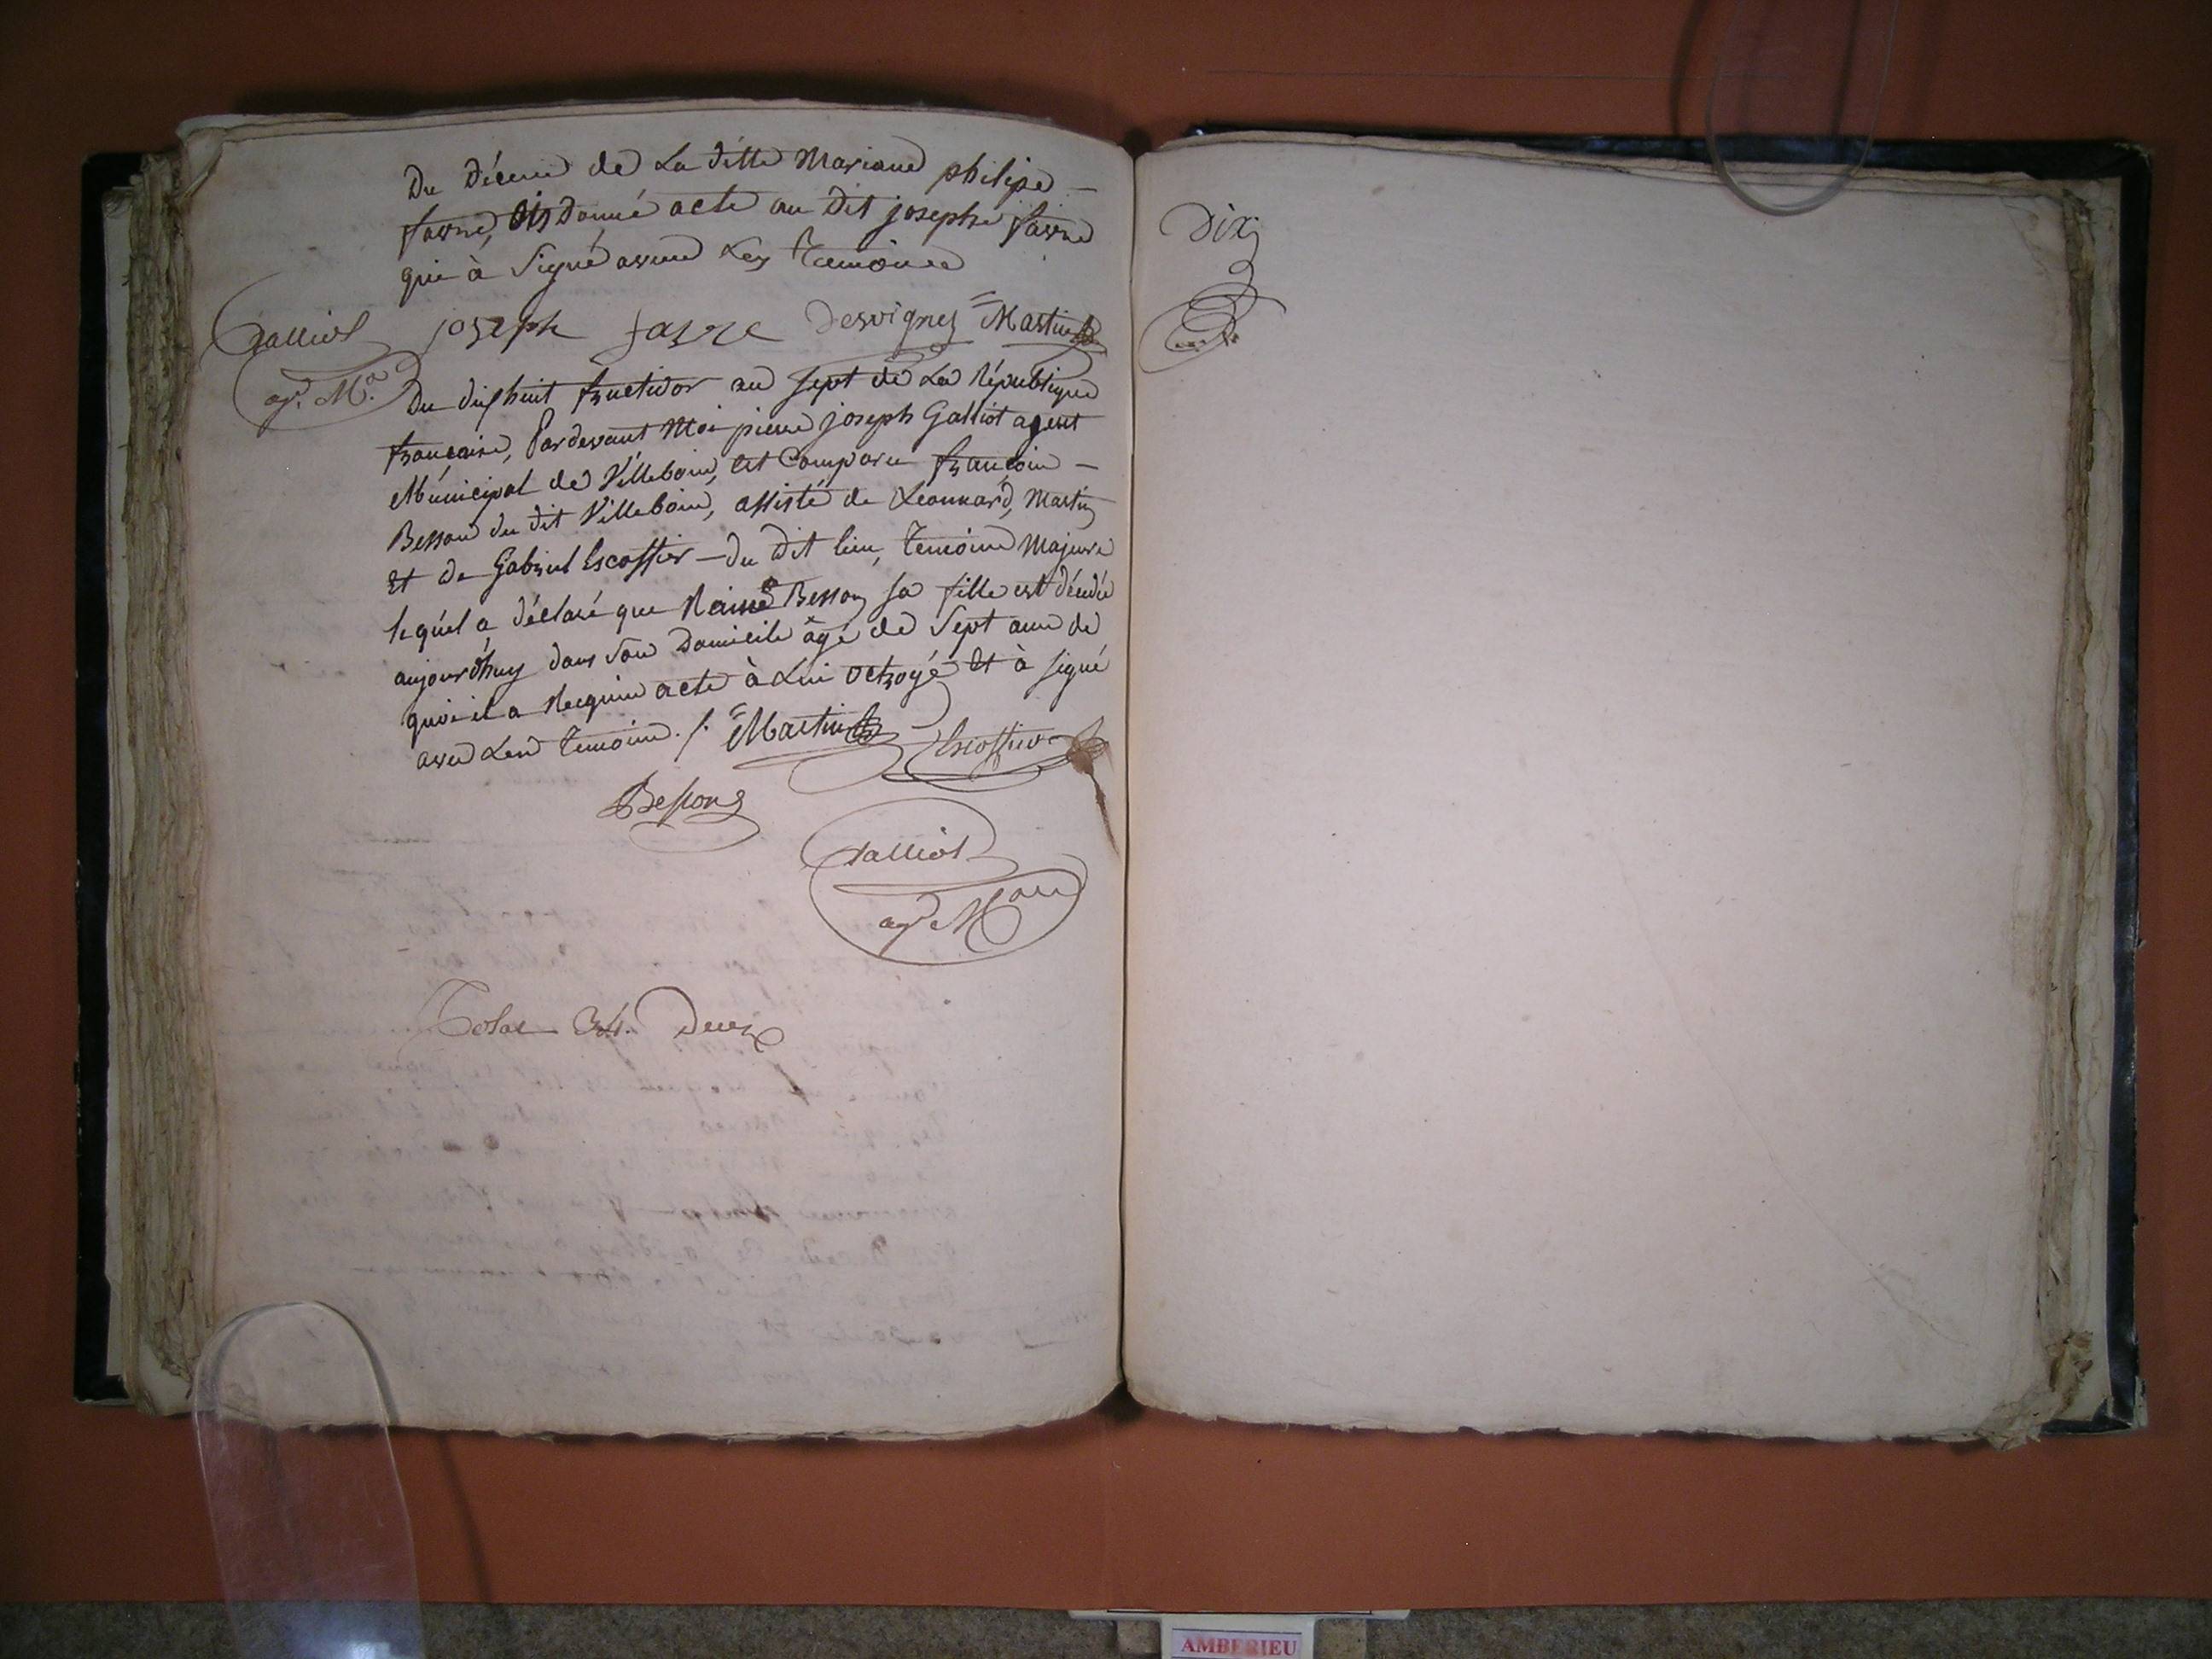 Du décес de La ditte Mariane philipe –
favre, ais donné acte au dit josephe favre
qui à Signé avec Les Temoins
Galliot joseph favre Desvignes Martin
agt. Mal.
Du dixhuit fructidor an sept de La République
francaise, Pardevant Moi pierre joseph Galliot agent
Municipal de Villebois, est Comparu françois –
Besson du dit Villebois, assisté de Leonnard, Martin
Et de Gabriel Escoffier – du dit lieu, temoins Majeurs
lequel a déclaré que Reine Besson sa fille est décédée
aujourdhuy dans son Domicile âgé de Sept ans de
quoi il a Requis acte à Lui octroyé Et à signé
avec Les temoins ./. Martin Escoffier
Besson
Galliot
agt. M
Total 34. Deces
Dix
AMBERIEU